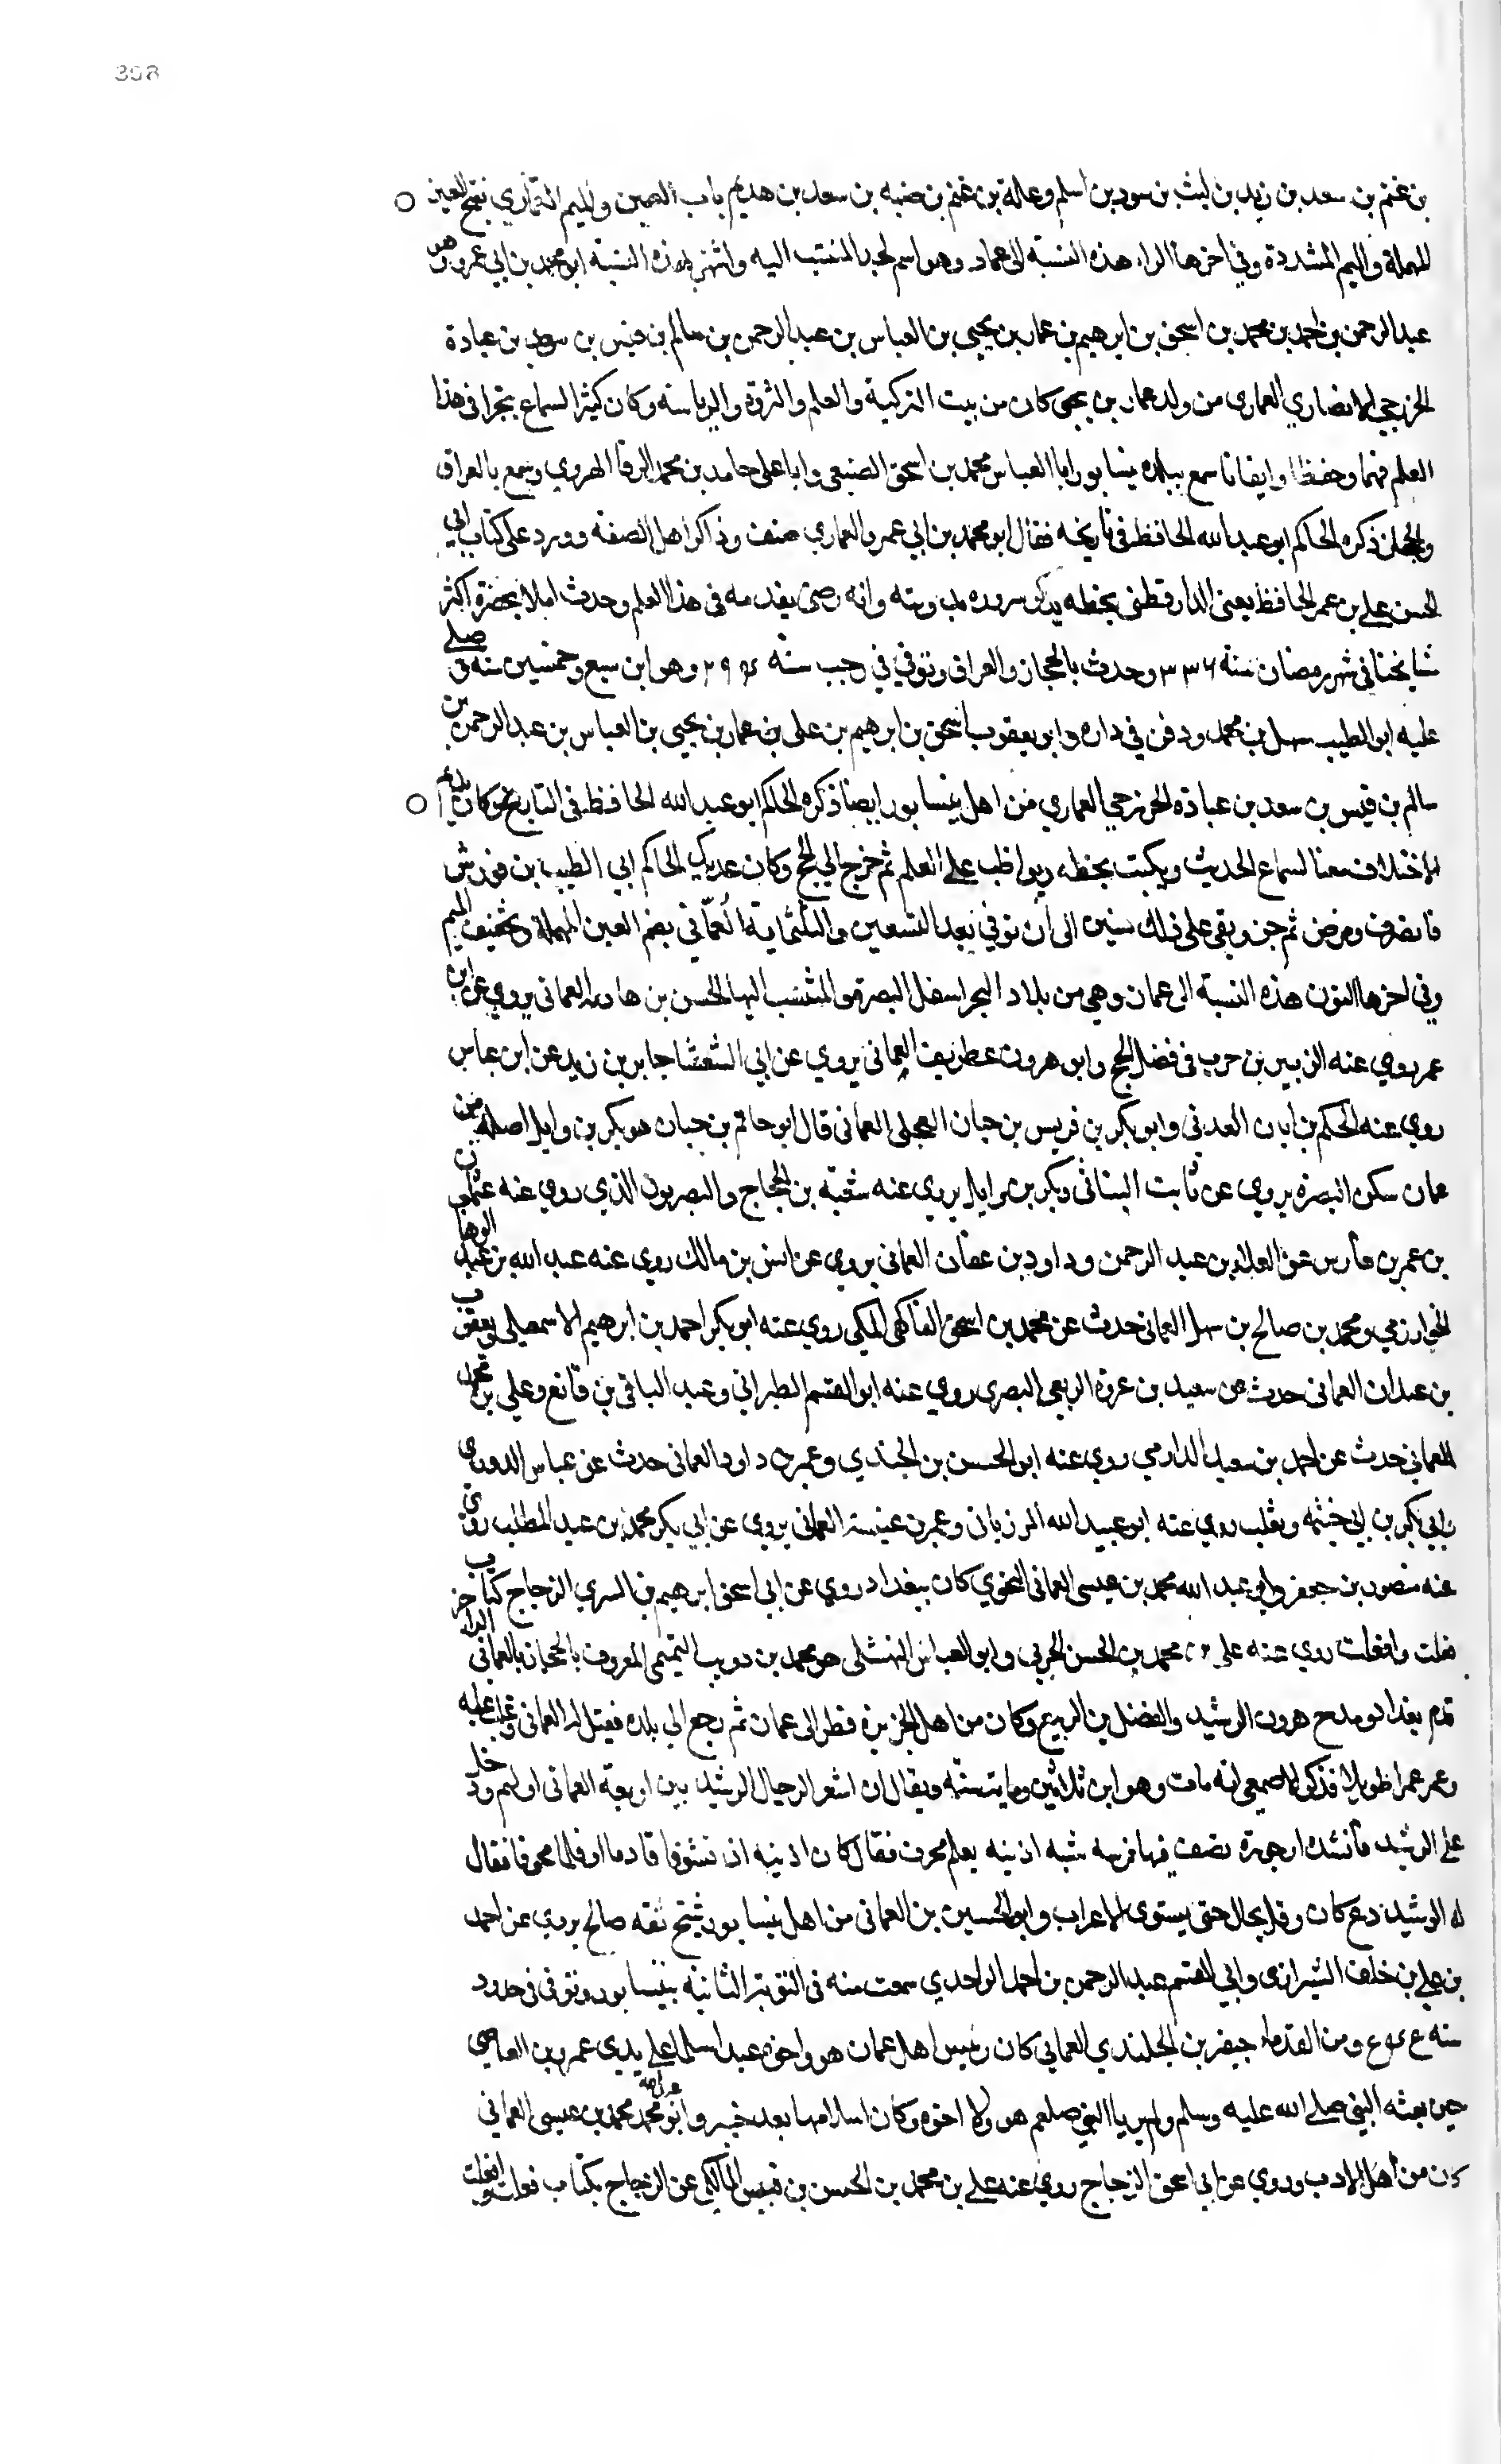 398
بن غنم بن سعد بن زيد بن ليث بن سود بن اسلم وعالة بن غنم بن ضبه بن سعد بن هديم باب العين والميم العماري بفتح العين
المهملة والميم المشددة وفي اخرها الراء هذه النسبة الى عمار وهو اسم لجد المنتسب اليه واشتهر بهذه النسبة ابو محمد بن ابي عمرو وهو
عبد الرحمن بن احمد بن محمد بن اسحق بن ابرهيم بن عمار بن يحيى بن العباس بن عبد الرحمن بن سالم بن قيس بن سعد بن عبادة
الخزرجي الانصاري العماري من ولد عمار بن يحيى كان من بيت التزكية والعلم والثروة والرياسة وكان كثير السماع متبحرا في هذا
العلم فهما وحفظا واتقانا سمع ببلده نيسابور ابا العباس محمد بن اسحق الصبغي وابا علي حامد بن محمد الرفا الهروي وسمع بالعراق
والحجاز ذكره الحاكم ابو عبد الله الحافظ في تاريخه فقال ابو محمد بن ابي عمرو العماري صنف وذاكر اهل الصنعة وورد على كتاب ابي
الحسن علي بن عمر الحافظ يعني الدارقطني بخطه يذكر سروره وانه رضي بقدمه في هذا العلم وحدث املا بحضرة اكثر
مشايخنا في شهر رمضان سنة وحدث بالحجاز والعراق وتوفي في رجب سنة وهو ابن سبع وخمسين سنة صلى
عليه ابو الطيب سهل بن محمد ودفن في داره وابو يعقوب اسحق بن ابرهيم بن علي بن عمار بن يحيى بن العباس بن عبد الرحمن بن
سالم بن قيس بن سعد بن عبادة الخزرجي العماري من اهل نيسابور ايضا ذكره الحاكم ابو عبد الله الحافظ في التاريخ وكان يديم
الاختلاف معنا لسماع الحديث ويكتب بخطه ويواظب على العلم ثم خرج الى الحج وكان عديل الحاكم ابي الطيب بن
فانصرف ومرض ثم جن وبقي على ذلك سنين الى ان توفي بعد التسعين والثلثماية العُمّاني بضم العين المهملة وتخفيف الميم
وفي اخرها النون هذه النسبة الى عمان وهي من بلاد البحر اسفل البصرة والمنتسب اليها الحسن بن هاديه العماني يروي عن ابن
عمر روى عنه الزبير بن حرب في فضل الحج وابو هرون غطريف العماني يروي عن ابي الشعثا جابر بن زيد عن ابن عباس
روي عنه الحكم بن ابان العدني وابو بكر بن فريس بن حبان العجلي العماني قال ابو حاتم بن حبان هو بكر بن وايل اصله من
عمان سكن البصرة يروي عن ثابت البناني وبكر بن وايل يروي عنه شعبة بن الحجاج والبصريون الذي روي عنه عثمان
بن عمر بن فارس عن العلاء بن عبد الرحمن وداود بن عفان العماني يروي عن انس بن مالك روي عنه عبد الله بن عبد الوهاب
الخوارزمي ومحمد بن صالح بن سهل العماني حدث عن محمد بن اسحق الفاكهي المكي روي عنه ابو بكر احمد بن ابرهيم الاسمعيلي ويعقوب
بن عبدان العماني حدث عن سعيد بن عزة الربعي البصري روي عنه ابو القسم الطبراني وعبد الباقي بن قانع وعلي بن محمد
العماني حدث عن احمد بن سعيد الدارمي روي عنه ابو الحسن بن الجندي وعمر بن داود العماني حدث عن عباس الدوري
وابي بكر بن ابي خيثمه وثعلب روي عنه ابو عبيد الله المرزباني وعمر بن عنبسة العماني يروي عن ابي بكر محمد بن عبد المطلب روي
عنه منصور بن جعفر وابو عبد الله محمد بن عيسى العماني النحوي كان ببغداد روي عن ابي اسحق ابرهيم بن السري الزجاج كتاب
فعلت وافعلت روي عنه علي بن محمد بن الحسن الحربي وابو العباس النهشلي هو محمد بن دويب التميمي المعروف بالعماني الراجز
قدم بغداد ومدح هرون الرشيد والفضل بن الربيع وكان من اهل الجزيرة فطرا الى عمان ثم رجع الى بلده فقيل له العماني وغلب عليه
وعمر عمرا طويلا فذكر الاصمعي انه مات وهو ابن ثلاثين وماية سنة ويقال ان اشعر الرجال الرشيد بين اربعة العماني اولهم ودخل
على الرشيد فانشده ارجوزة يصف فيها فرسه شبه اذنيه بقلم محرف فقال كان اذنيه اذ تشوفا قادما او قلما محرفا فقال
له الرشيد دع كان وقل يخال حتى يستوي الاعراب وابو الحسين بن العماني من اهل نيسابور شيخ ثقة صالح يروي عن احمد
بن علي بن خلف الشيرازي وابي القسم عبد الرحمن بن احمد الواحدي سمعت منه في النوبة الثانية بنيسابور وتوفي في حدود
سنه ومن القدماء جيفر بن الجلندي العماني كان رئيس اهل عمان هو واخوه عبد اسلما على يدي عمرو بن العاصي
حين بعثه النبي صلى الله عليه وسلم ولم يريا النبي صلعم هو ولا اخوه وكان اسلامهما بعد خيبر وابو محمد محمد بن عيسى العماني
كان من اهل الادب وروي عن ابي اسحق الزجاج روي عنه علي بن محمد بن الحسن بن قيس المالكي عن الزجاج بكتاب فعلت وافعلت